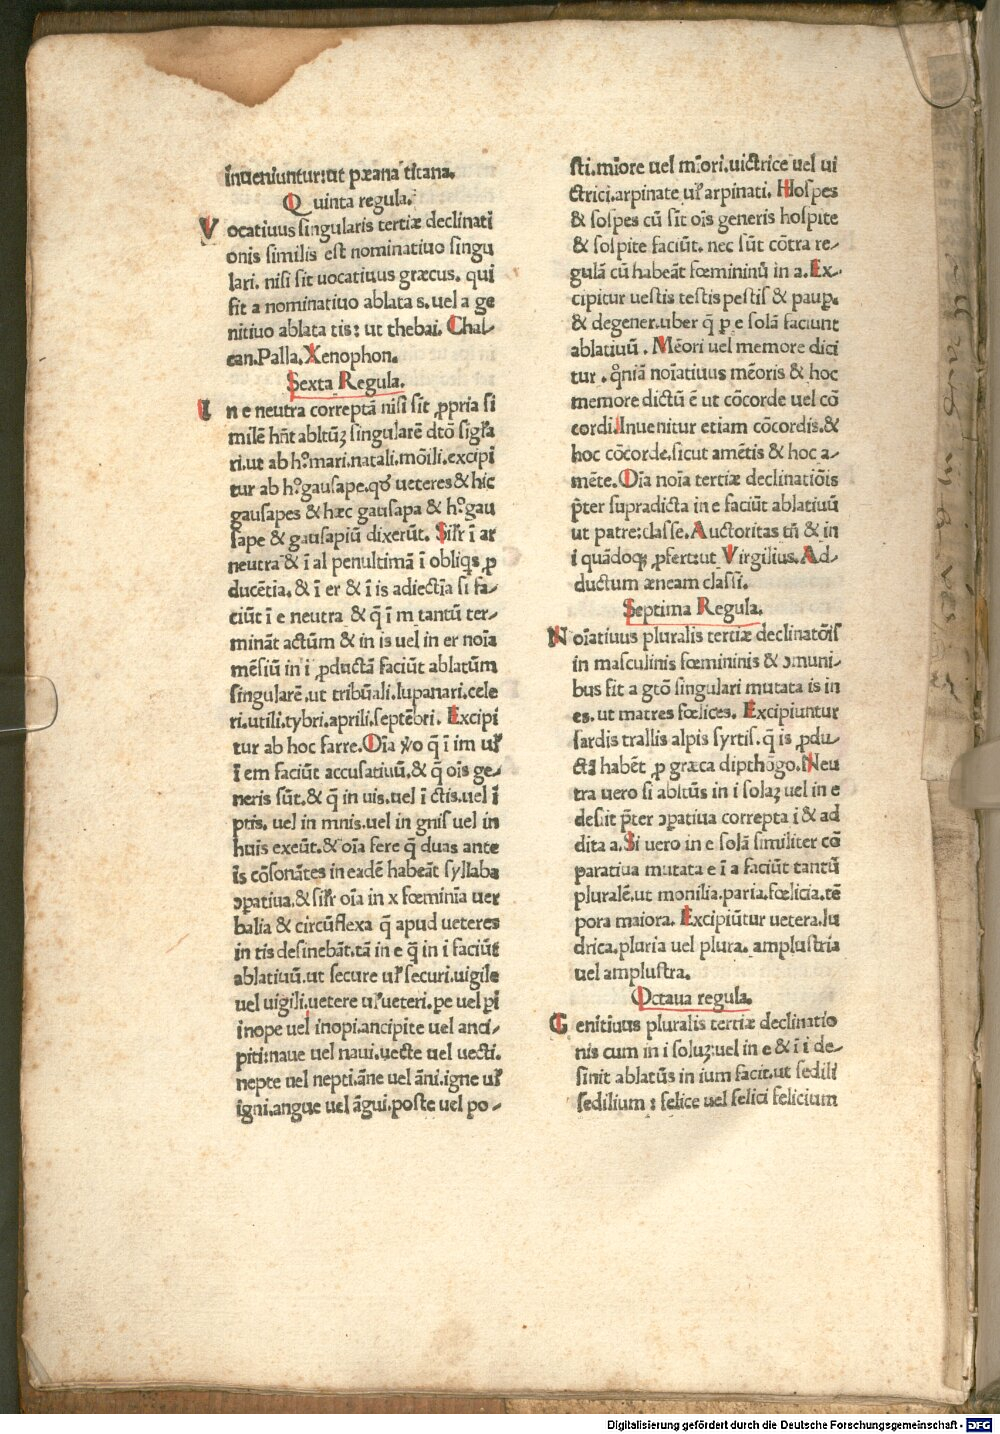 inueniuntur:ut pæana titana.
Quinta regula.
Vocatiuus singularis tertiæ declinati
onis similis est nominatiuo singu
lari. nisi sit uocatiuus græcus. qui
fit a nominatiuo ablata s. uel a ge
nitiuo ablata tis: ut thebai. Chal-
can. Palla. Xenophon.
Sexta Regula.
In e neutra correptā nisi sīt ꝓpria si
milē hn̄t abltūꝫ singularē dtō sigl̄a
ri.ut ab hͦ.mari.natali.mōili.excipi
tur ab hͦ.gausape.qď ueteres & hic
gausapes & hæc gausapa & hͦ.gau
sape & gausapiū dixerūt. Sil̄r ī ar
neutra & ī al penultimā ī obliqs ꝓ
ducētia. & ī er & ī is adiectīa si fa-
ciūt ī e neutra & q̄ ī m tantū ter-
mināt actūm & in is uel in er noīa
mēsiū in i ꝓductā faciūt ablatūm
singularē.ut tribūali.lupanari.cele
ri.utili.tybri.aprili.septēbri. Excipi
tur ab hoc farre. Oīa ẘo q̄ ī im ul̄
ī em faciūt accusatiuū.& q̄ oīs ge-
neris sūt.& q̄ in uis.uel ī ctis.uel ī
ptis. uel in mnis.uel in gnis uel in
huis exeūt.& oīa fere q̄ duas ante
is cōsonātes in eadē habeāt syllaba
ↄpatiua.& sil̄r oīa in x fœminīa uer
balia & circūflexa q̄ apud ueteres
in tis desinebāt.tā in e q̄ in i faciūt
ablatiuū.ut secure ul̄ securi.uigile
uel uigili.uetere ul̄ ueteri.pe uel pi
inope uel inopi.ancipite uel anci-
piti:naue uel naui.uecte uel uecti.
nepte uel nepti.āne uel āni.igne ul̄
igni.angue uel āgui.poste uel po-
sti.miore uel miori.uictrice uel ui
ctrici.arpinate ul̄ arpinati. Hospes
& sospes cū sīt oīs generis hospite
& sospite faciūt. nec sūt cōtra re-
gulā cū habeāt fœmininū in a. Ex-
cipitur uestis testis pestis & pauꝑ.
& degener.uber q̄ p e solā faciunt
ablatiuū. Mēori uel memore dici
tur. qm̄iā noīatiuus mēoris & hoc
memore dictū ē ut cōcorde uel cō
cordi. Inuenitur etiam cōcordis.&
hoc cōcorde.sicut amētis & hoc a-
mēte. Oīa noīa tertiæ declinatiōis
p̄ter supradicta in e faciūt ablatiuū
ut patre:classe. Auctoritas tn̄ & in
i quādoqꝫ ꝓfert:ut Virgilius. Ad-
ductum æneam classi.
Septima Regula.
Noīatiuus pluralis tertiæ declinatōis
in masculinis fœmininis & ↄmuni-
bus fit a gtō singulari mutata is in
es. ut matres fœlices. Excipiuntur
sardis trallis alpis syrtis. q̄ is ꝓdu-
ctā habēt ꝓ græca dipthōgo. Neu
tra uero si abltūs in i solaꝫ uel in e
desiit p̄ter ↄpatiua correpta i & ad
dita a. Si uero in e solā similiter cō
paratiua mutata e ī a faciūt tantū
pluralē.ut monilia.paria.fœlicia.tē
pora maiora. Excipiūtur uetera.lu
drica.pluria uel plura. amplustria
uel amplustra.
Octaua regula.
Genitiuus pluralis tertiæ declinatio
nis cum in i soluꝫ:uel in e & ī i de-
sinit ablatūs in ium facit.ut sedili
sedilium: felice uel felici felicium
Digitalisierung gefördert durch die Deutsche Forschungsgemeinschaft - DFG